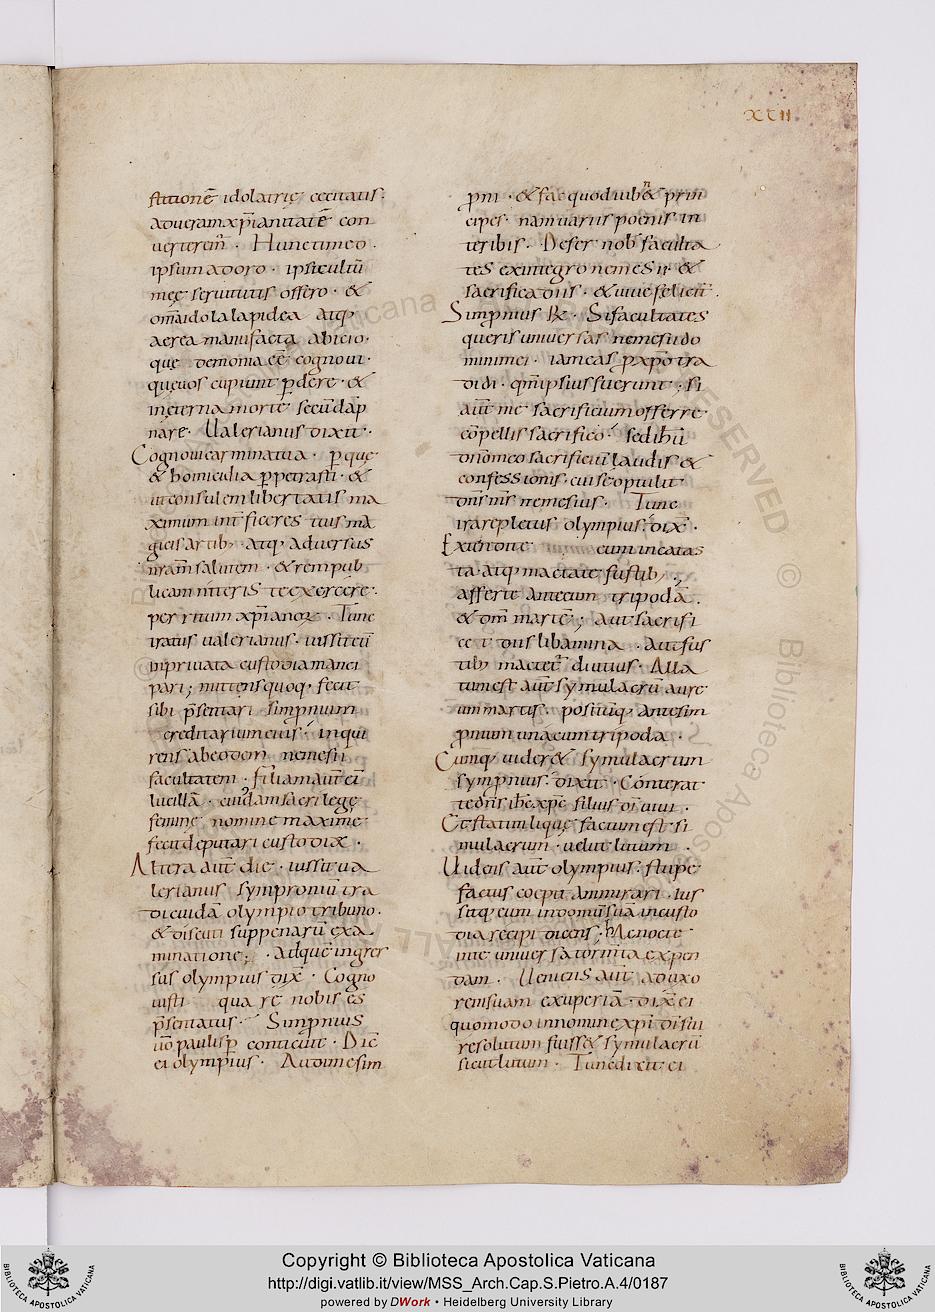 XCII
stitionē idolatrię cecitatis·
ad veram xp̄ianitatē con
verterem̄· Hunc timeo·
ipsum adoro· ipsi cultū
meę servitutis offero· &
om̄a idola lapidea atq;
aerea manufacta abicio·
quę demonia eē cognovi·
quę vos cupiunt p̄dere· &
in ęterna morte secū dāp
nare· Valerianus dixit·
Cognovi carmina tua· p̄ quę
& homicidia p̄petrasti· &
ut consulem libertatis ma
ximum int̄ficeres tuis ma
gicis artib; atq; adversus
nr̄am salutem· & rem pub
licam niteris te exercere·
per ritum xp̄ianoꝝ· Tunc
iratus valerianus· iussit eū
in privata custodia manci
pari; mittens quoq; fecit
sibi p̄sentari simp̄nium
creditarium eius· inqui
rens ab eo dom̄ nemesii
facultatem· filiam aut̄ ei'
lucillā· cuidam sacrilegę
feminę nomine maxime
fecit deputari custodiæ·
Altera aut̄ die· iussit va
lerianus symproniū tra
di cuidā olympio tribuno·
& discuti sup penarū exa
minatione; · ad quē ingres
sus olympius dix̄· Cogno
visti qua re nobis es
p̄sentatus· Simp̄nius
v̄o paulisp̄ conticuit· Dic̄
ei olympius· Audivi esim
p̄ni· & sac quod iub&̄ prin
cipes· nam variis poenis in
teribis· Defer nob̄ faculta
tes ex integro nemesii· &
sacrifica diis· & vive felicit̄·
Simp̄nius R̄· Si facultates
queris universas nemesii do
mini mei· iam eas p̄ xp̄o tra
didi· qm̄ ipsius fuerunt; si
aut̄ me sacrificium offerre·
cōpellis sacrifico· sed ih̄ū
dn̄o meo sacrificiū laudis &
confessionis· cui se optulit
dn̄s m̄s nemesius· Tunc
ira repletus olympius· dix̄·
Extendite eum in catas
ta· atq; mactate fustib;·;
afferte ante eum tripodā·
& dm̄ martē; aut sacrifi
cet diis libamina· aut fus
tib; mactet̄ diutius· Alla
tum est aut̄ symulacrū aure
um martis· positūq; ante sim
p̄nium una cum tripoda·
Cumq; vider& symulacrum
symp̄nius· dixit· Conterat
te dn̄s ih̄s xp̄c filius dī vivi·
Et statim liquę factum est si
mulacrum· velut lutum·
Videns aut̄ olympius· stupe
factus coepit ammirari· ius
sitq; eum in domū suā in custo
dia recipi dicens; Hac nocte
in te universa tormta expen
dam· Veniens aut̄ ad uxo
rem suam exuperiā· dix̄ ei
quomodo in nomine xp̄i dī sui
resolutum fuiss& symulacrū
sicut lutum· Tunc dixit ei
Copyright © Biblioteca Apostolica Vaticana
http://digi.vatlib.it/view/MSS_Arch.Cap.S.Pietro.A.4/0187
powered by DWork • Heidelberg University Library